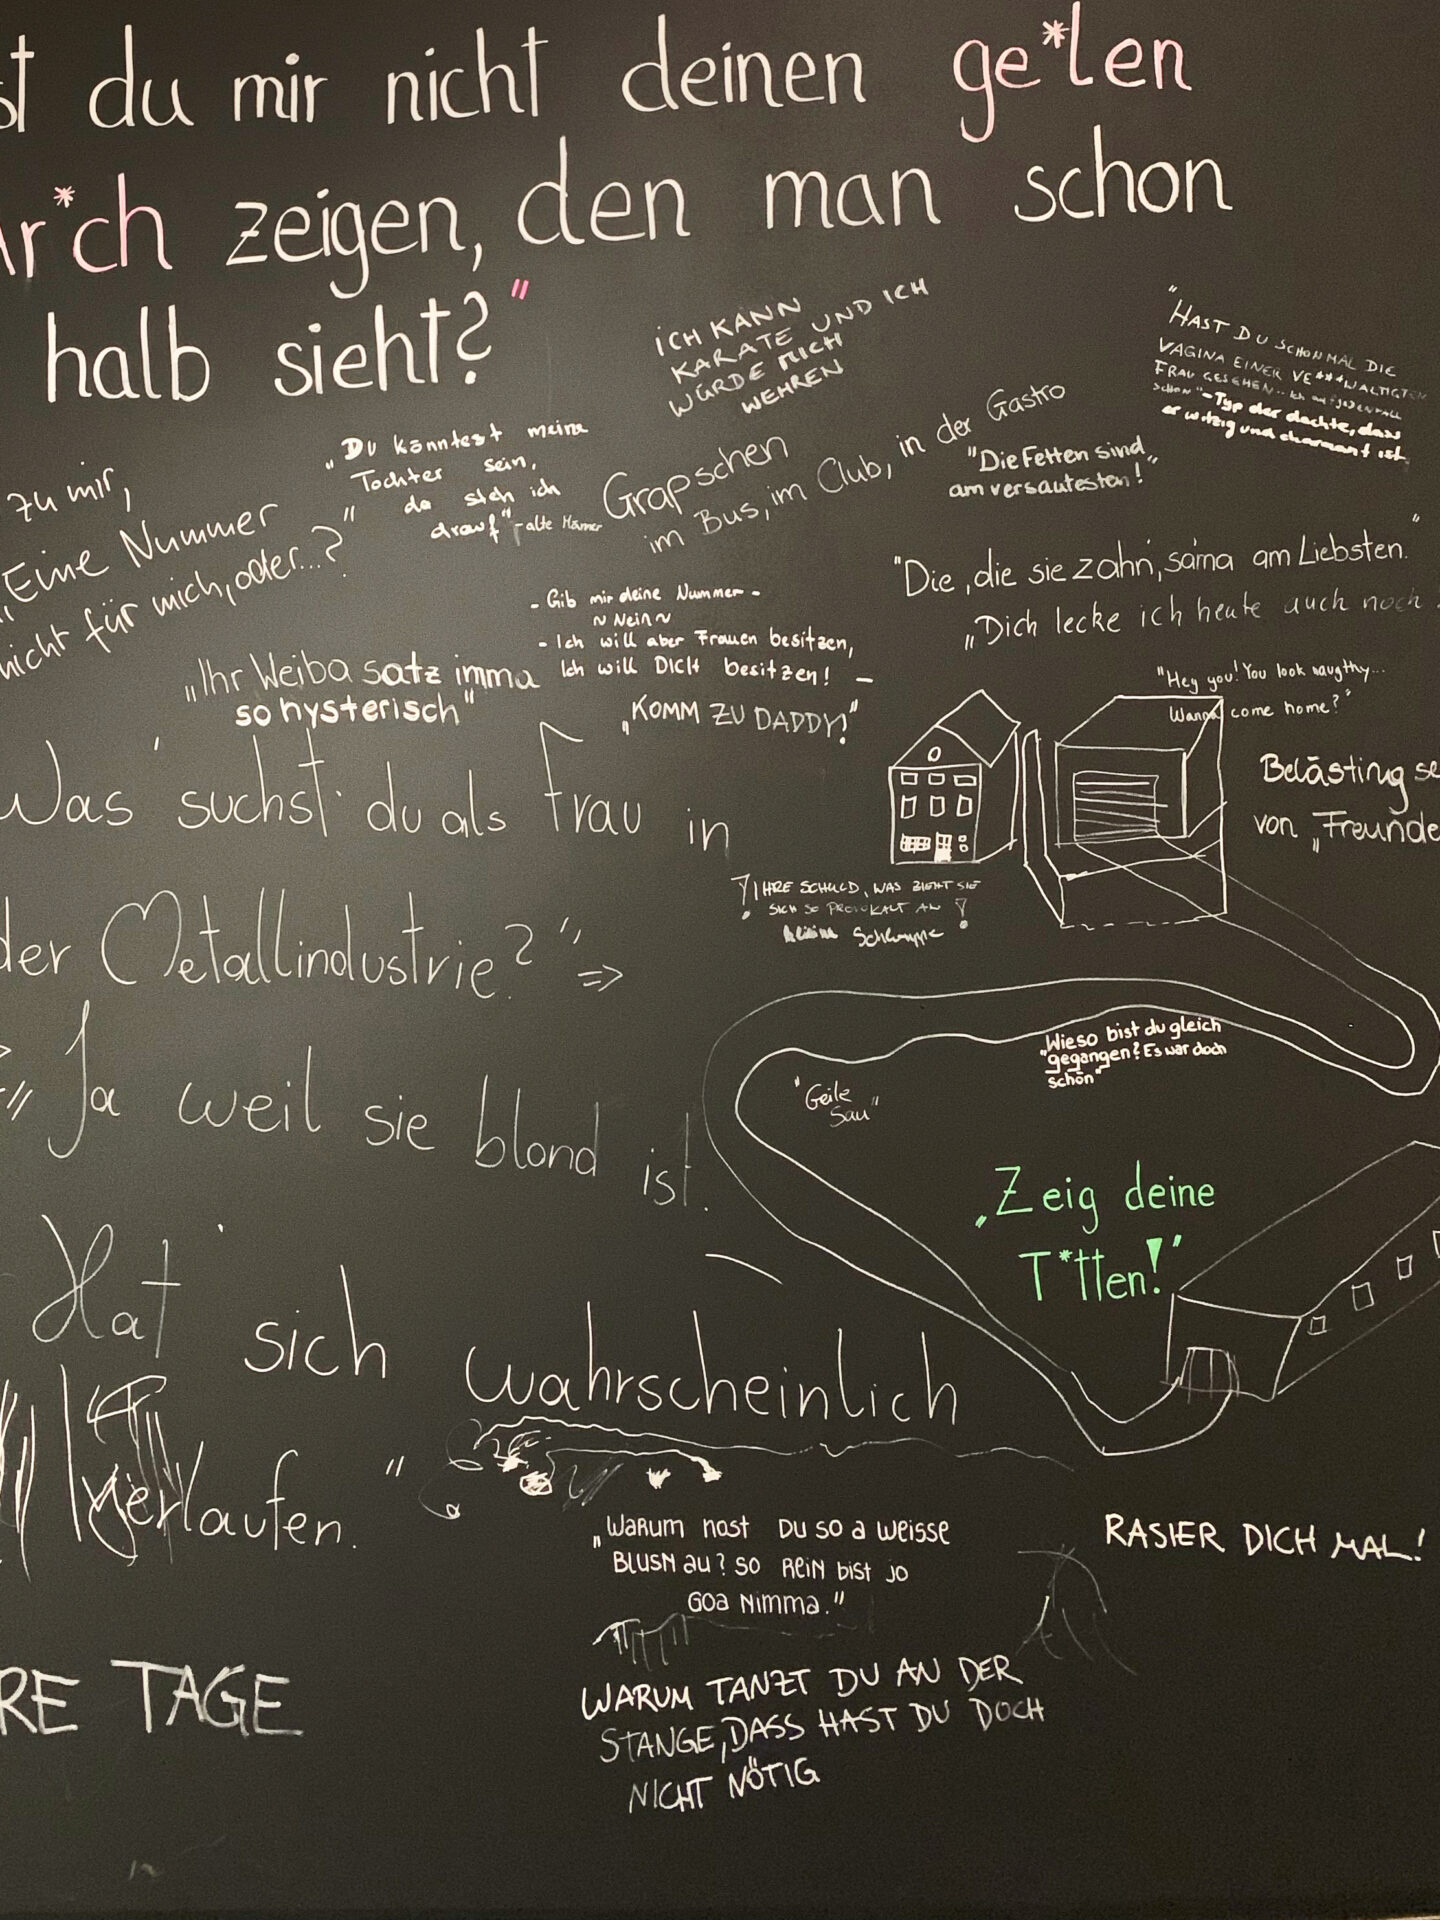 du mir nicht deinen ge*len
Ar*ch zeigen, den man schon
halb sieht?"
ICH KANN
KARATE UND ICH
WÜRDE MICH
WEHREN
"HAST DU SCHONMAL DIE
VAGINA EINER VE***WALTIGTEN
FRAU GESEHEN... Ich auf jedenfall
schon" - Typ der dachte, dass
er witzig und charmant ist
„Du könntest meine
Tochter sein,
da steh ich
drauf" - alte Männer
Grapschen
im Bus, im Club, in der Gastro
"Die Fetten sind
am versautesten!"
zu mir,
„Eine Nummer
nicht für mich, oder...?"
"Die, die sie zahn, sana am Liebsten."
„Dich lecke ich heute auch noch
- Gib mir deine Nummer -
~ Nein ~
- Ich will aber Frauen besitzen,
Ich will DICH besitzen! -
„Ihr Weiba satz imma
so hysterisch"
„KOMM ZU DADDY!"
"Hey you! You look naugthy...
Wanna come home?"
Belästing se
von „Freunde
Was suchst du als Frau in
der Metallindustrie?" =>
! IHRE SCHULD, WAS ZIEHT SIE
SICH SO PROVOKALT AN !
kleine Schlampe
=> „Ja weil sie blond ist.
Hat sich wahrscheinlich
verlaufen."
"Wieso bist du gleich
gegangen? Es war doch
schön"
"Geile
Sau"
„Zeig deine
T*tten!"
„WARUM HOST DU SO A WEISSE
BLUSN AU? SO REIN BIST JO
GOA NIMMA."
RASIER DICH MAL!
RE TAGE
WARUM TANZT DU AN DER
STANGE, DASS HAST DU DOCH
NICHT NÖTIG